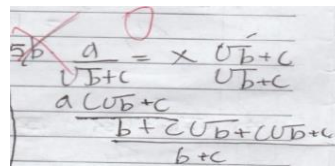 5b a/(√b+c) = × (√b+c)/(√b+c)
a(√b+c
b+c√b+c√b+c
b+c